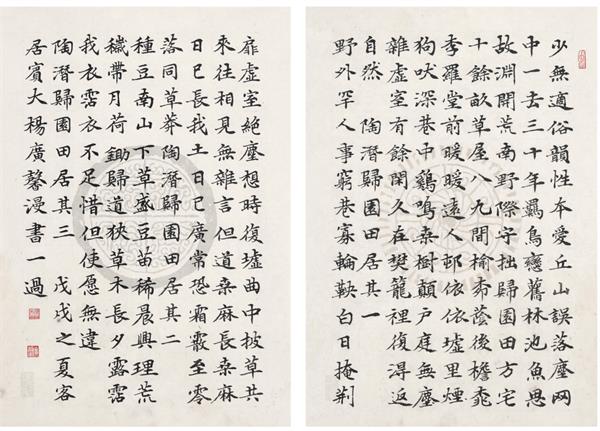 少無適俗韻性本愛丘山誤落塵网
中一去三十年羈鳥戀舊林池魚思
故淵開荒南野際守拙歸園田方宅
十餘畝草屋八九間榆柳蔭後檐桃
李羅堂前暖暖遠人邨依依墟里煙
狗吠深巷中鷄鳴桑樹顛戶庭無塵
雜虛室有餘閑久在樊籠裡復得返
自然 陶潛歸園田居其一
野外罕人事窮巷寡輪鞅白日掩荆
扉虛室絕塵想時復墟曲中披草共
來往相見無雜言但道桑麻長桑麻
日已長我土日已廣常恐霜霰至零
落同草莽陶潛歸園田居其二
種豆南山下草盛豆苗稀晨興理荒
穢帶月荷鋤歸道狹草木長夕露霑
我衣霑衣不足惜但使願無違
陶潛歸園田居其三 戊戌之夏客
居賓大楊廣馨漫書一過